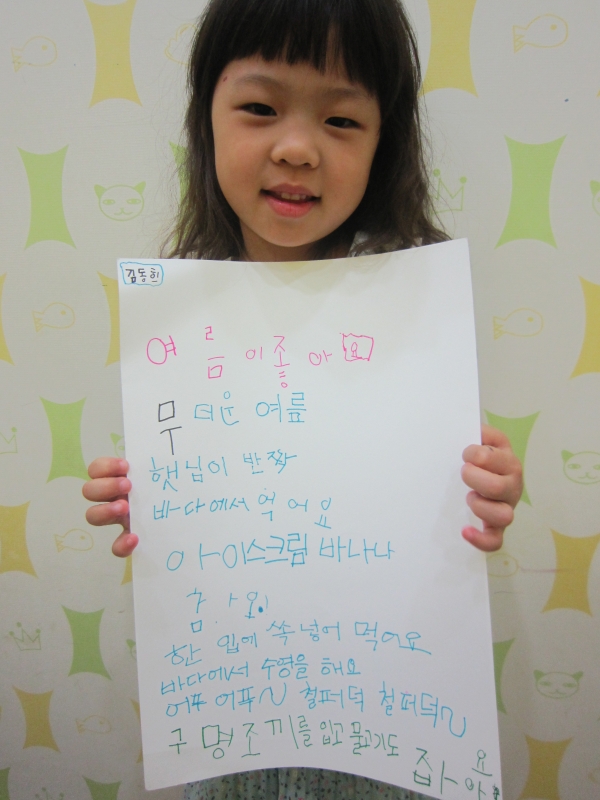 김동희
여름이좋아요
무더운 여름
햇님이 반짝
바다에서 먹어요
아이스크림 바나나
참외
한 입에 쏙 넣어 먹어요
바다에서 수영을 해요
어푸 어푸~ 철퍼덕 철퍼덕~
구명조끼를 입고 물고기도 잡아요